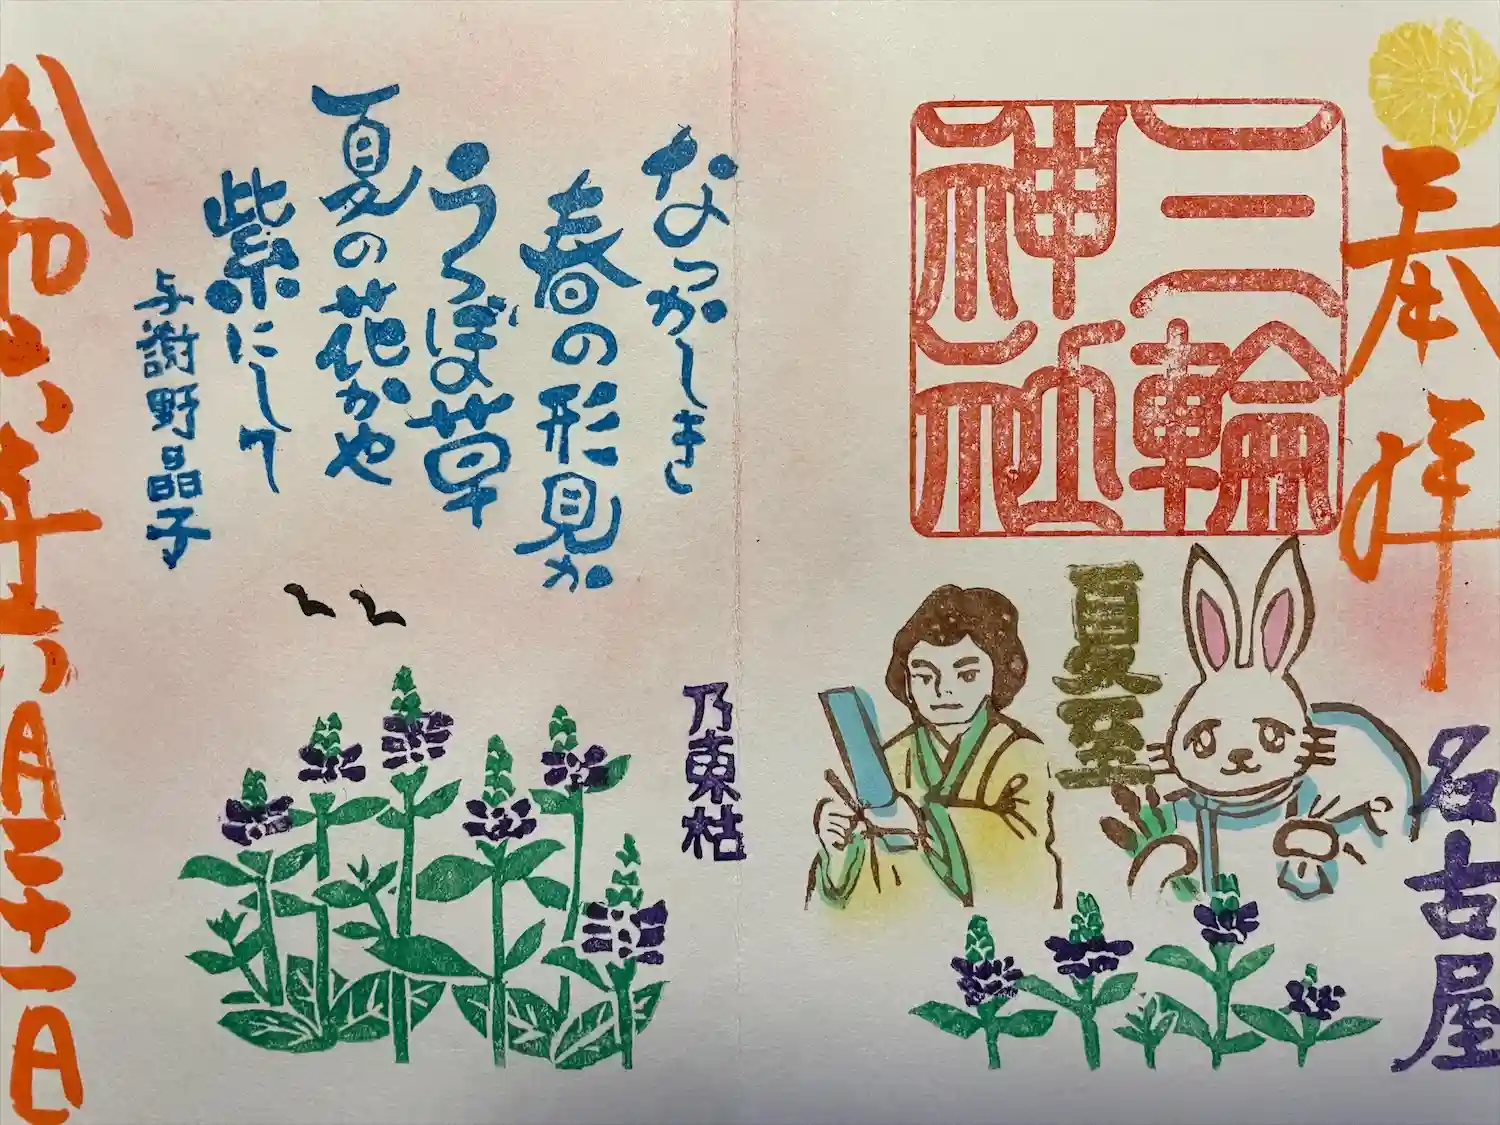 奉拝
名古屋
三輪
神社
夏至
乃東枯
なつかしき
春の形見か
うつぼ草
夏の花かや
紫にして
与謝野晶子
令和六年六月二十一日